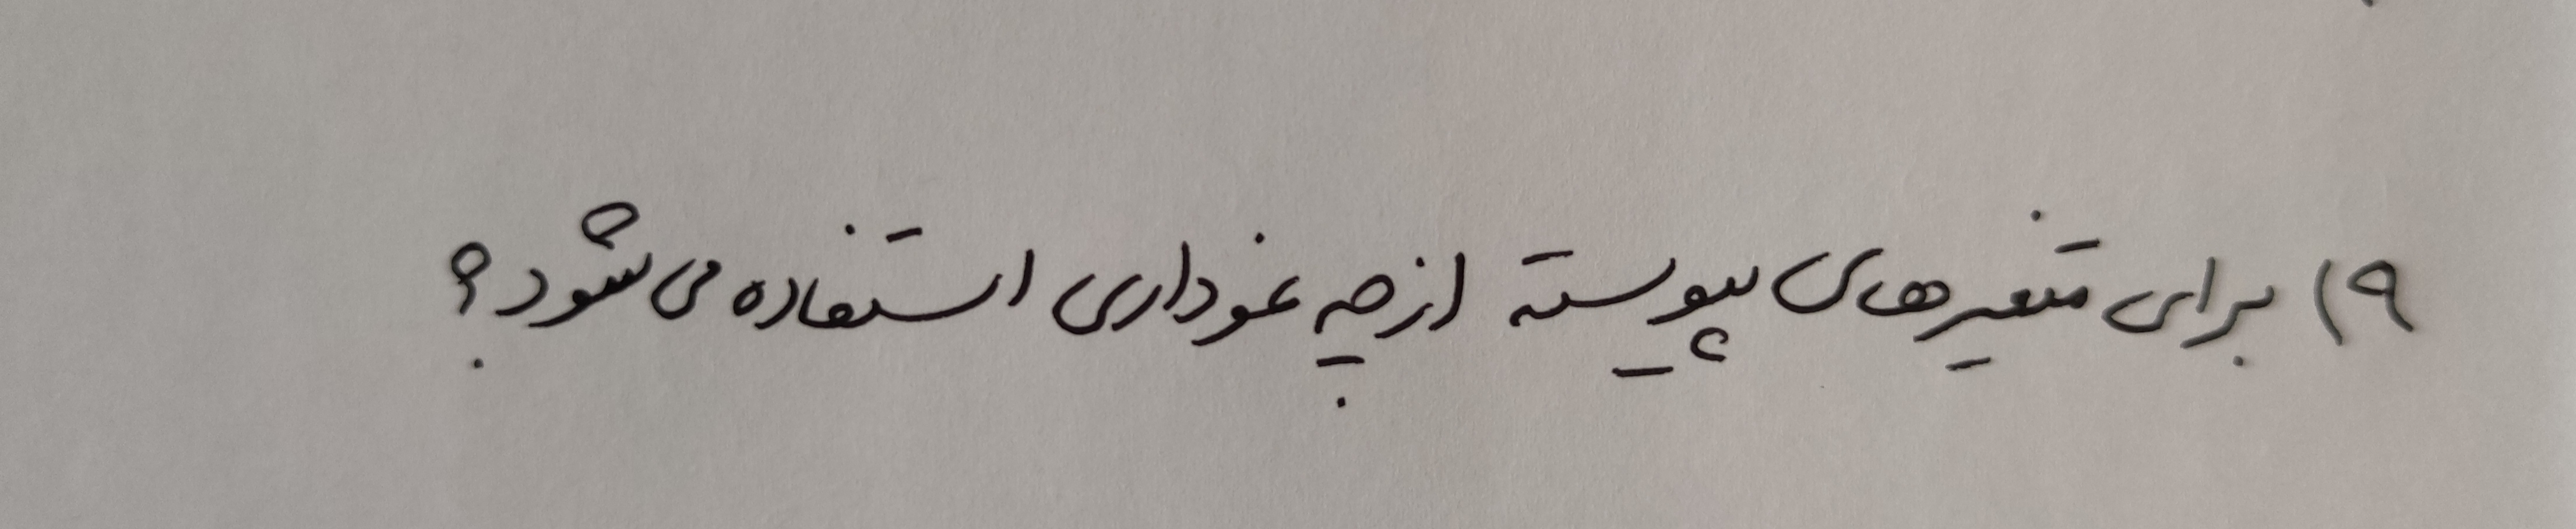 ۹) برای متغیرهای پیوسته از چه نموداری استفاده می شود؟